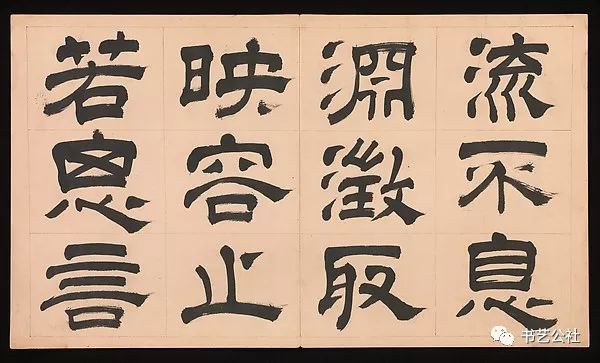 流不息
淵澂取
映容止
若恖言
书艺公社